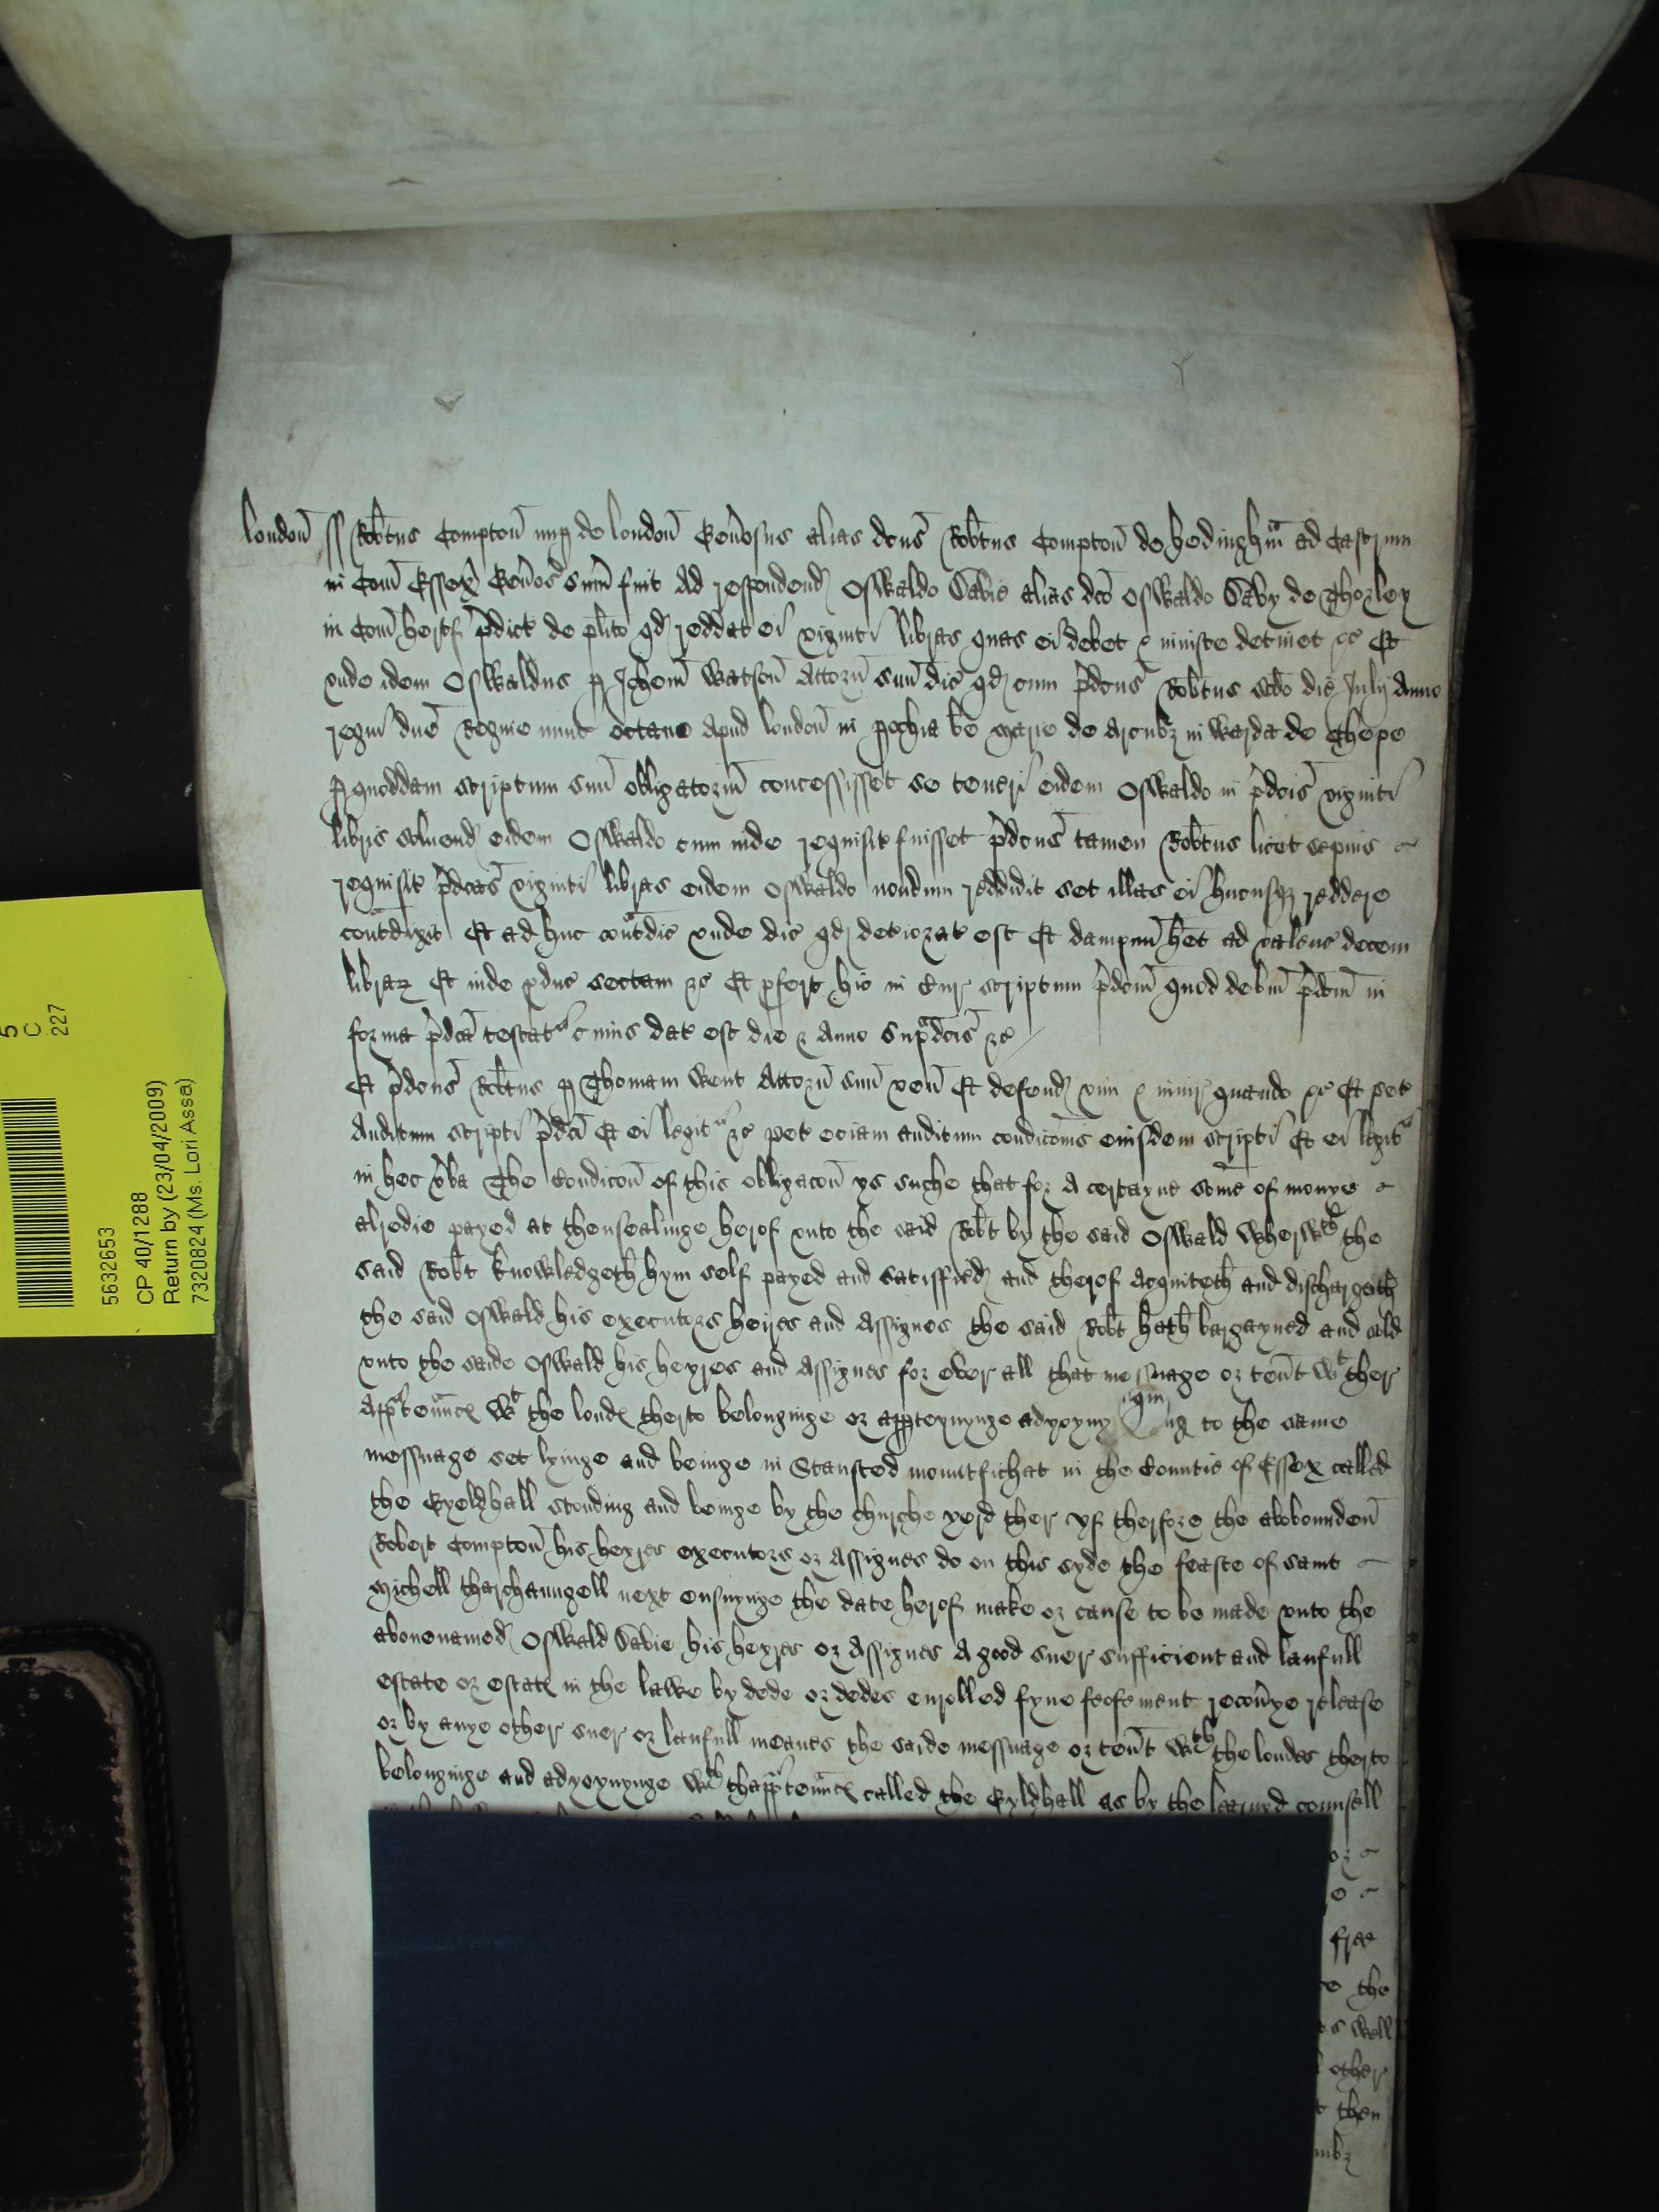 5
C
227
5632653
CP 40/1288
Return by (23/04/2009)
7320824 (Ms. Lori Assa)
londoñ ss Rob̃tus Comptoñ nup de londoñ Gen̄osus alias dc̄us Rob̃tus Comptoñ de hedinghm̄ ad Castrum
in Com̄ Essex̄ Gen̄os sum̄ fuit Ad respondend Oswaldo Sabie alias dc̄o Oswaldo Saby de Thorley
in Com̄ hertf p̄dict de pl̄ito qd reddat ei viginti libras quas ei debet & iniuste detinet &c Et
vnde idem Oswaldus p Joh̄em Watsoñ Attorñ suū dic̄ qd cum p̄dcūs Rob̃tus scd̄o die Julij Anno
regni dn̄e Regine nunc octauo Apud londoñ in pochia b̄e Marie de Arcubz in Warda de Chepe
p quoddam scriptum suū obligatoriū concessisset se teneri eidem Oswaldo in p̄dcīs viginti
libris soluend eidem Oswaldo cum inde requisit fuisset p̄dcūs tamen Rob̃tus licet sepius
requisit p̄dcās viginti libras eidem Oswaldo nondum reddidit set illas ei hucusqz reddere
contradixit Et ad huc contradic̄ vnde dic̄ qd deteriorat est Et dampnū h̄et ad valenc̄ decem
librar Et inde pduc̄ sectam &c Et pfert hic in Cur scriptum p̄dcm̄ quod debitū p̄dcm̄ in
forma p̄dcā testat cuius dat est die & Anno sup̄dcīs &c
Et p̄dcūs Rob̃tus p Thomam Went Attorñ suū veñ Et defend vim & iniur quando &c Et pet
Auditum scripti p̄dcī Et ei legit &c pet eciam auditum condicōnis eiusdem scripti Et ei legit
in hec v̄ba The Condicoñ of this obligacoñ ys suche that for A certayne some of monye
alredie payed at thensealinge herof vnto the said Rob̃t by the said Oswald Wherwth the
said Rob̃t knowledgeth hym self payed and satisffied and therof Acquiteth and dischargeth
the said Oswald his executors heires and Assignes the said Rob̃t hath bargayned and sold
vnto the saide Oswald his heyres and Assignes for ever all that messuage or teñt wt ther
Appteñnc wt the londs therto belonginge or appteynynge adyoynynge to the same
messuage set lyinge and beinge in Stansted mountfichat in the Countie of Essex called
the Gyeldhall stonding and beinge by the churche yerd ther yf therfore the abobounden
Robert Comptoñ his heyres executors or Assignes do on this syde the feaste of saint
Michell tharchaungell next ensuynge the date herof make or cause to be made vnto the
abouenamed Oswald Sabie his heyres or Assignes A good suer sufficient and laufull
estate or estats in the lawe by dede or dedes enrolled fyne feofement recov̄ye release
or by anye other suer or laufull meanes the saide messuage or teñt wth the londes therto
belonginge and adyoynynge wth thappteñnc called the Gyldhall as by the learned counsell
or
free
the
well
other
then